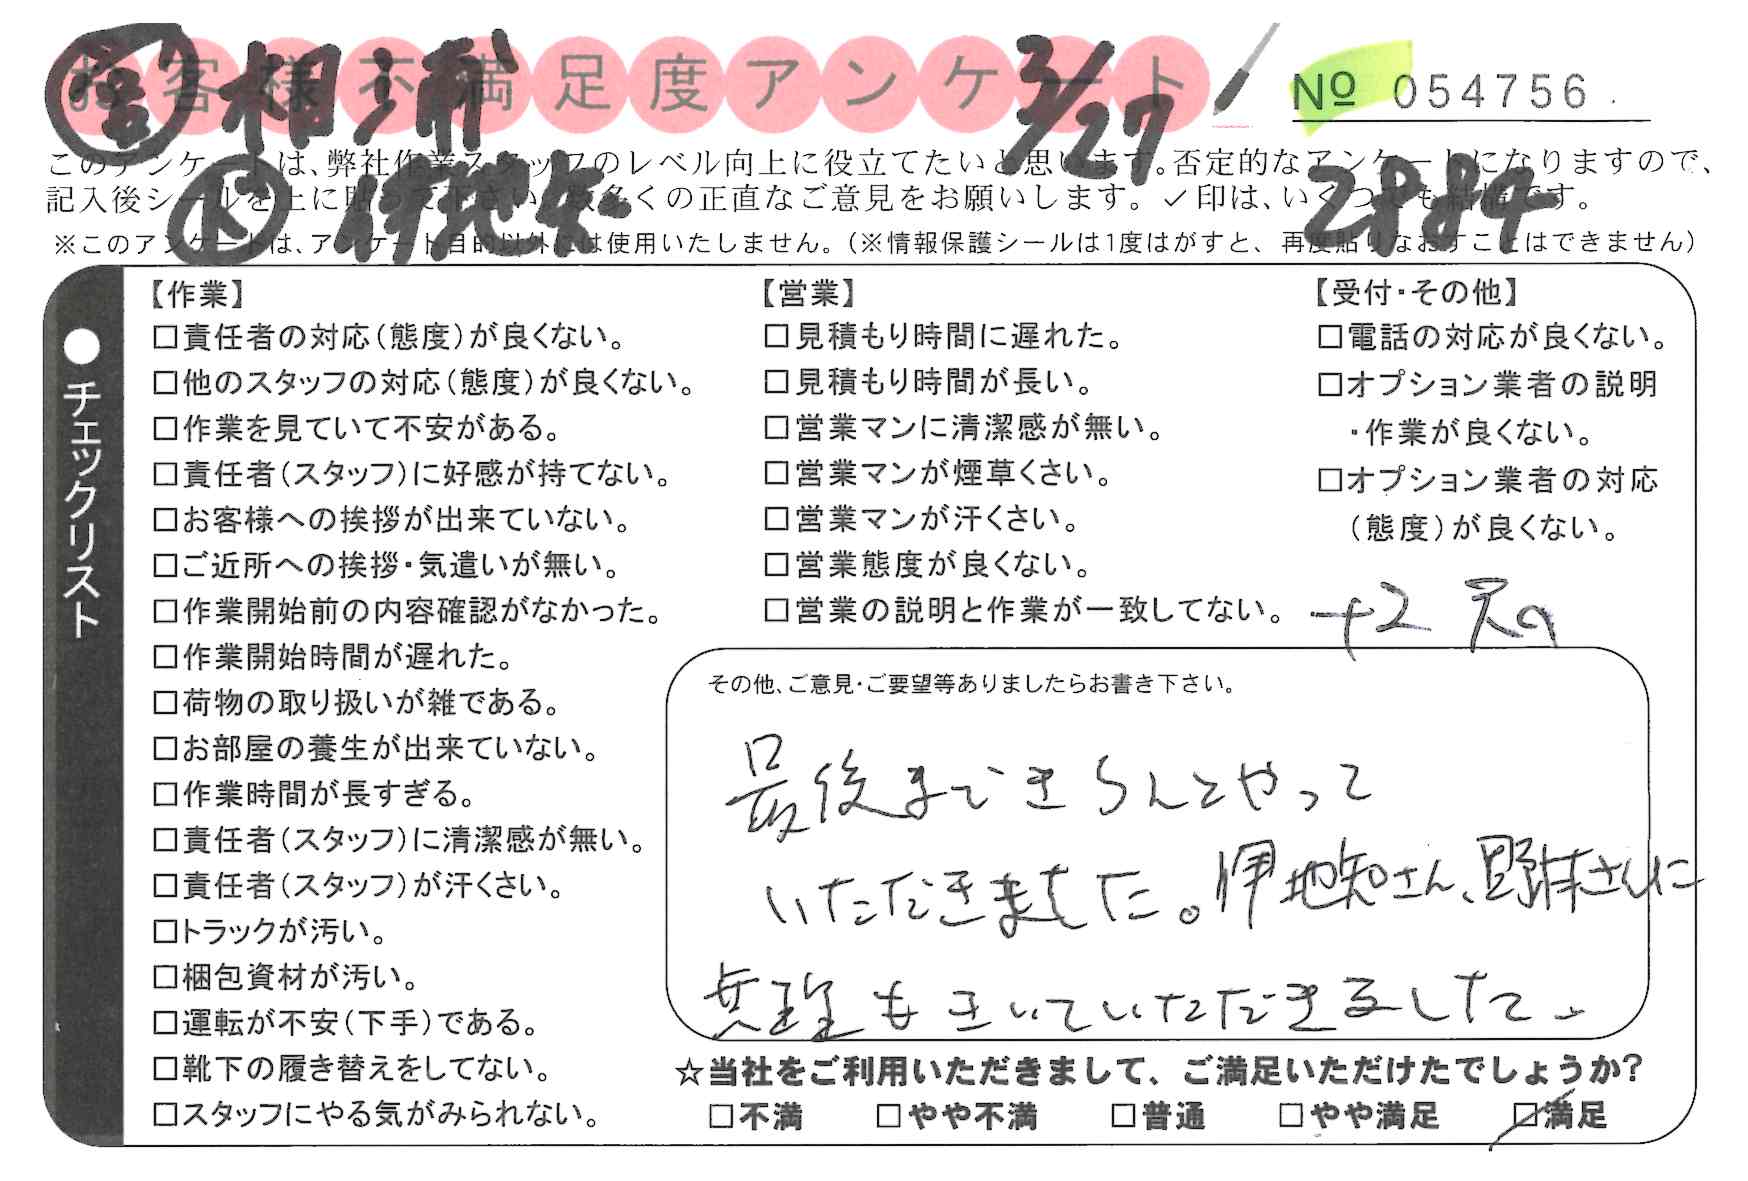 お客様不満足度アンケート
営 相浦 3/27
№ 054756
このアンケートは、弊社作業スタッフのレベル向上に役立てたいと思います。否定的なアンケートになりますので、
記入後シールを上に貼って下さい。数多くの正直なご意見をお願いします。✓印は、いくつでも結構です。
※このアンケートは、アンケート目的以外には使用いたしません。（※情報保護シールは1度はがすと、再度貼りなおすことはできません）
伊地知 2884
●チェックリスト
【作業】
□責任者の対応（態度）が良くない。
□他のスタッフの対応（態度）が良くない。
□作業を見ていて不安がある。
□責任者（スタッフ）に好感が持てない。
□お客様への挨拶が出来ていない。
□ご近所への挨拶・気遣いが無い。
□作業開始前の内容確認がなかった。
□作業開始時間が遅れた。
□荷物の取り扱いが雑である。
□お部屋の養生が出来ていない。
□作業時間が長すぎる。
□責任者（スタッフ）に清潔感が無い。
□責任者（スタッフ）が汗くさい。
□トラックが汚い。
□梱包資材が汚い。
□運転が不安（下手）である。
□靴下の履き替えをしてない。
□スタッフにやる気がみられない。
【営業】
□見積もり時間に遅れた。
□見積もり時間が長い。
□営業マンに清潔感が無い。
□営業マンが煙草くさい。
□営業マンが汗くさい。
□営業態度が良くない。
□営業の説明と作業が一致してない。
【受付・その他】
□電話の対応が良くない。
□オプション業者の説明
・作業が良くない。
□オプション業者の対応
（態度）が良くない。
その他、ご意見・ご要望等ありましたらお書き下さい。
最後まできちんとやって
いただきました。伊地知さん、野林さんに
無理もきいていただきました。
☆当社をご利用いただきまして、ご満足いただけたでしょうか?
□不満 □やや不満 □普通 □やや満足 □満足